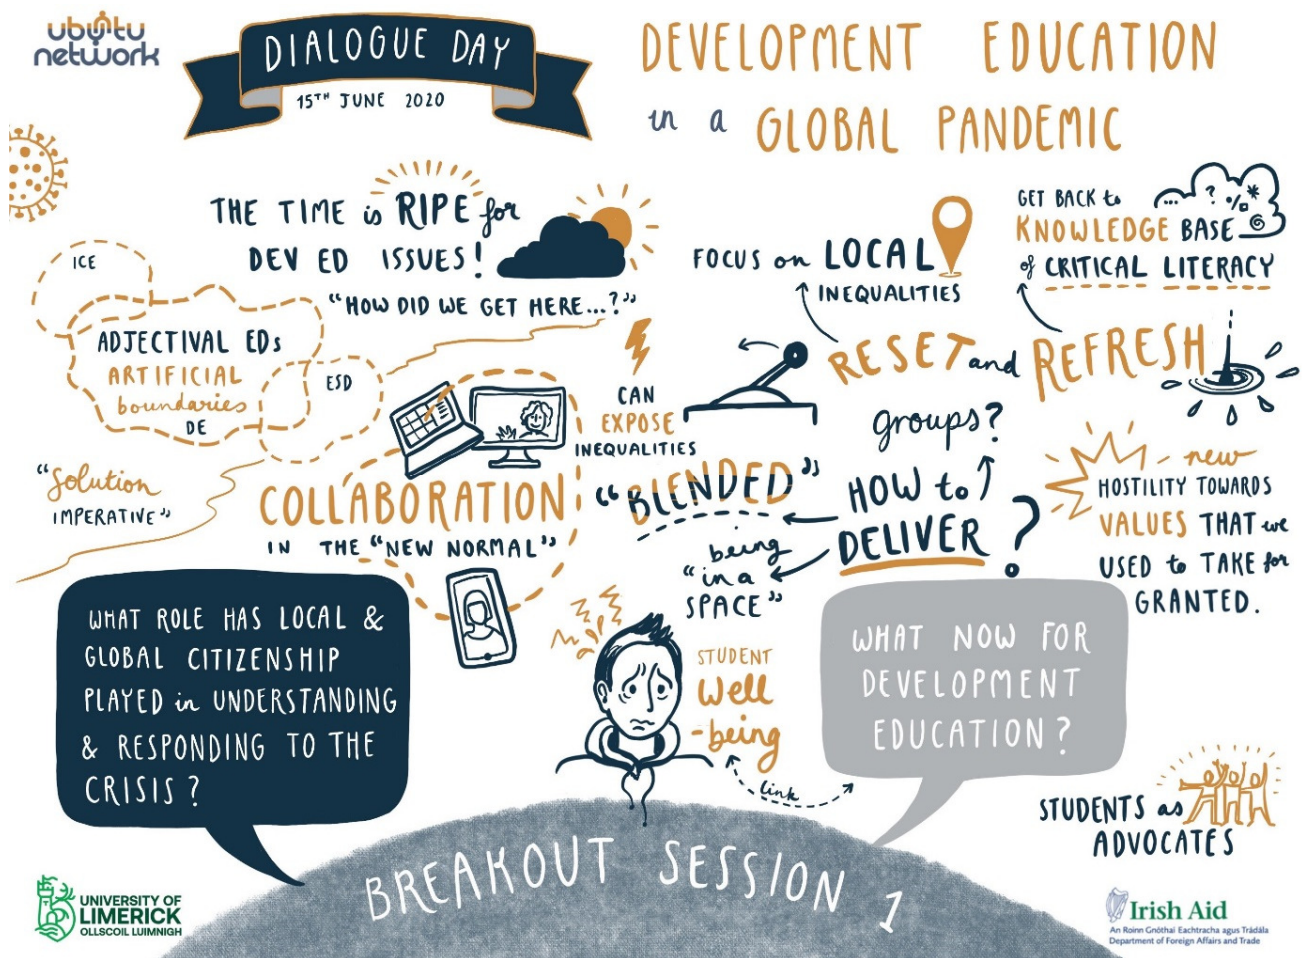 ubuntu
network
DIALOGUE DAY
15TH JUNE 2020
DEVELOPMENT EDUCATION
in a GLOBAL PANDEMIC
THE TIME is RIPE for
DEV ED ISSUES!
"HOW DID WE GET HERE...?"
ICE
ADJECTIVAL EDs
ARTIFICIAL
boundaries
DE
ESD
"Solution
IMPERATIVE"
COLLABORATION
IN THE "NEW NORMAL"
CAN
EXPOSE
INEQUALITIES
FOCUS on LOCAL
INEQUALITIES
GET BACK to
KNOWLEDGE BASE
of CRITICAL LITERACY
... ? * %
RESET and REFRESH
groups?
HOW to
DELIVER ?
"BLENDED"
being
"in a
SPACE"
new
HOSTILITY TOWARDS
VALUES THAT we
USED to TAKE for
GRANTED.
WHAT ROLE HAS LOCAL &
GLOBAL CITIZENSHIP
PLAYED in UNDERSTANDING
& RESPONDING TO THE
CRISIS?
STUDENT
well
-being
link
WHAT NOW FOR
DEVELOPMENT
EDUCATION?
STUDENTS as
ADVOCATES
BREAKOUT SESSION 1
UNIVERSITY OF
LIMERICK
OLLSCOIL LUIMNIGH
Irish Aid
An Roinn Gnóthaí Eachtracha agus Trádála
Department of Foreign Affairs and Trade